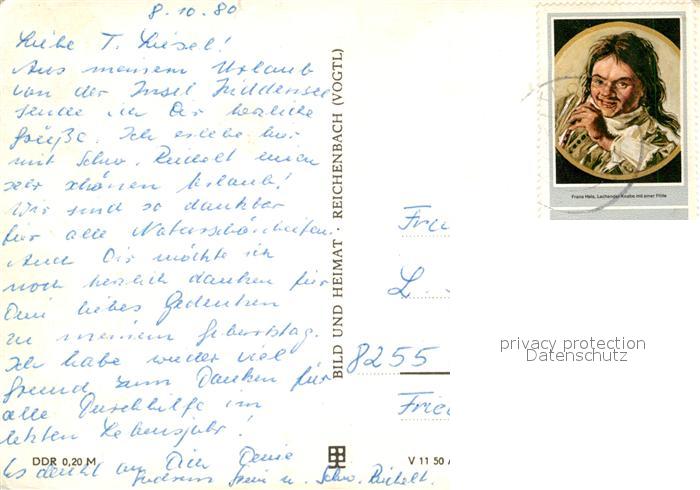 8.10.80
Liebe T. Liesel!
Aus meinem Urlaub
von der Insel Hiddensee
sende ich Dir herzliche
Grüße. Ich erlebe hier
mit Schw. Reichelt einen
sehr schönen Urlaub!
Wir sind so dankbar
für alle Naturschönheiten.
Auch Dir möchte ich
noch herzlich danken für
Dein liebes Gedenken
zu meinem Geburtstag.
Ich habe wieder viel
Grund zum Danken für
alle Durchhilfe im
letzten Lebensjahr!
Es denkt an Dich Deine
u. Schw. Reichelt.
DDR 0,20 M
BILD UND HEIMAT · REICHENBACH (VOGTL)
V 11 50
Frans Hals, Lachender Knabe mit einer Flöte
L.
8255
privacy protection
Datenschutz